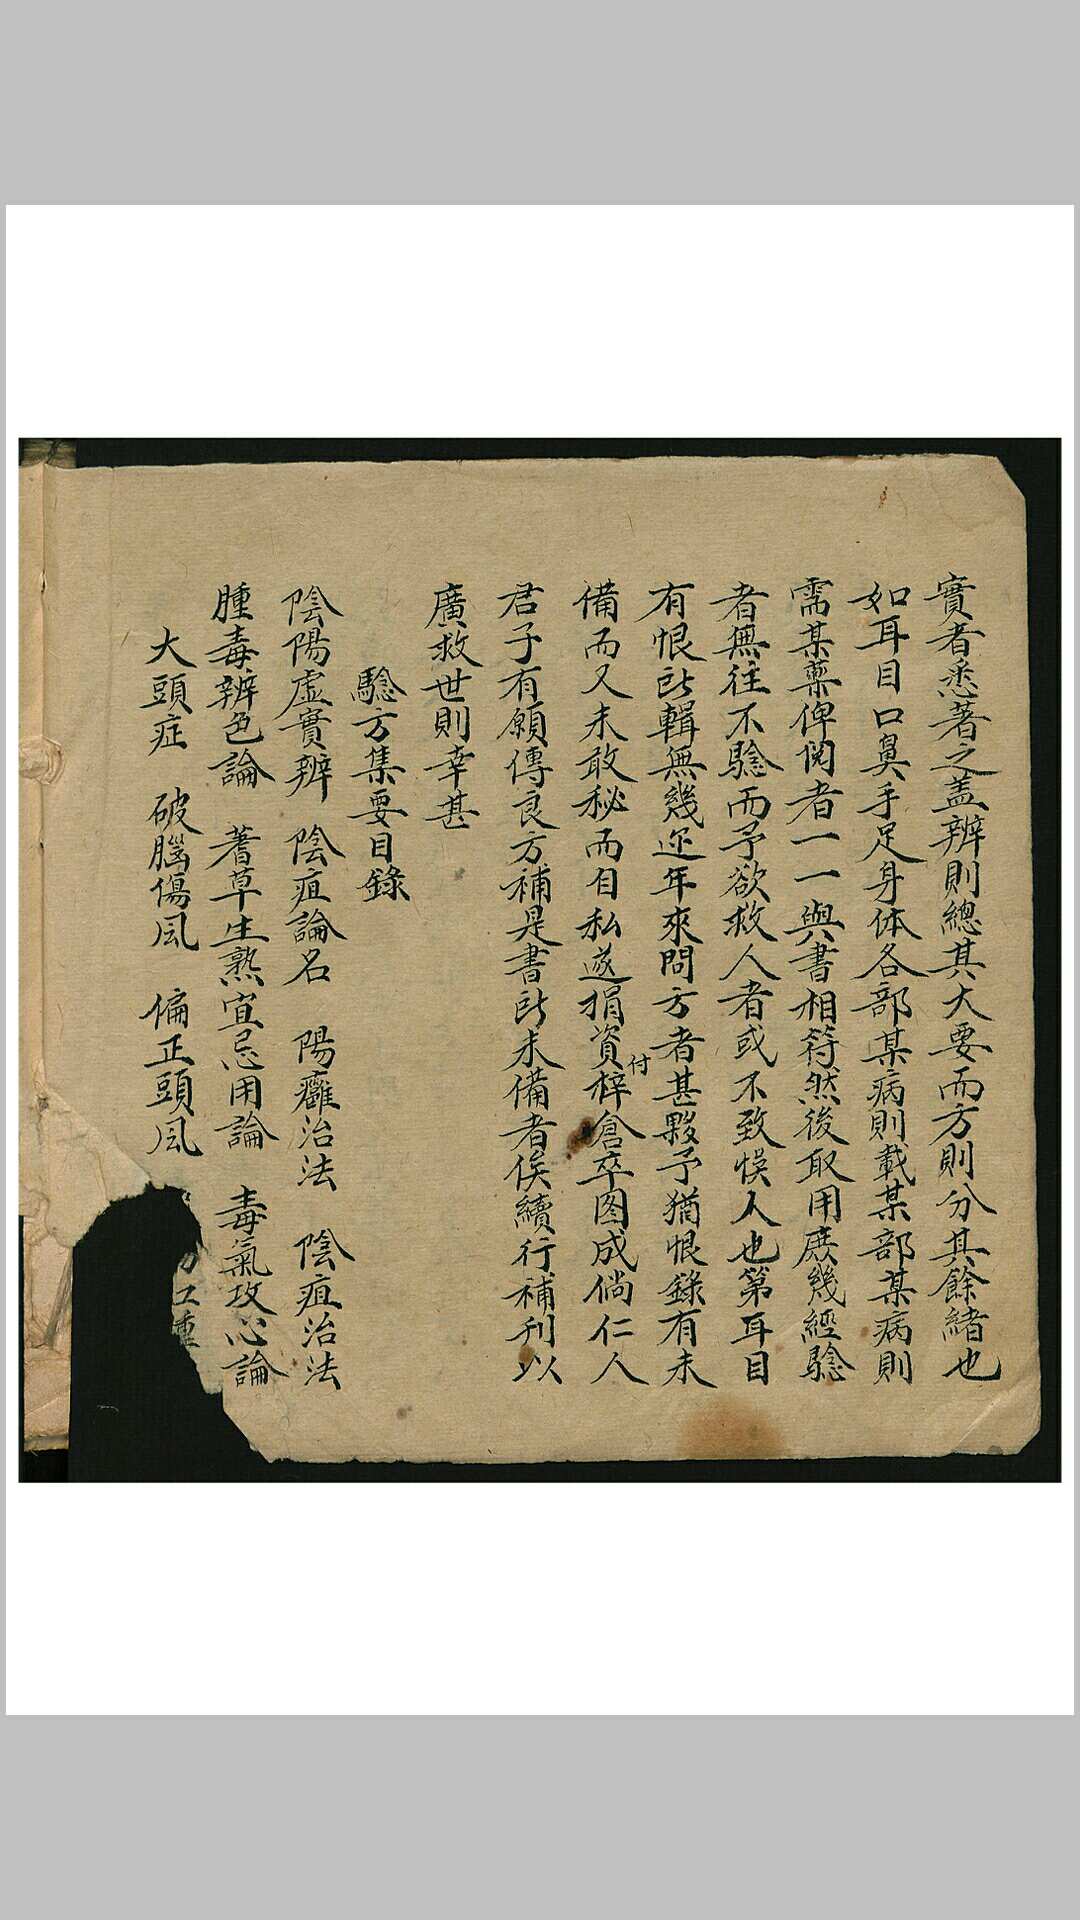 實者悉著之盖辨則總其大要而方則分其餘緒也
如耳目口鼻手足身体各部某病則載某部某病則
需某藥俾阅者一一與書相符然後取用庶幾經騐
者無往不騐而予欲救人者或不致悮人也第耳目
有恨所輯無幾迩年來問方者甚夥予猶恨錄有未
備而又未敢秘而自私遂捐資付梓倉卒图成倘仁人
君子有願傳良方補是書所未備者俟續行補刊以
廣救世則幸甚
騐方集要目錄
陰陽虛實辨 陰疽論名 陽癰治法 陰疽治法
腫毒辨色論 蓍草生熟宜忌用論 毒氣攻心論
大頭症 破腦傷风 偏正頭风